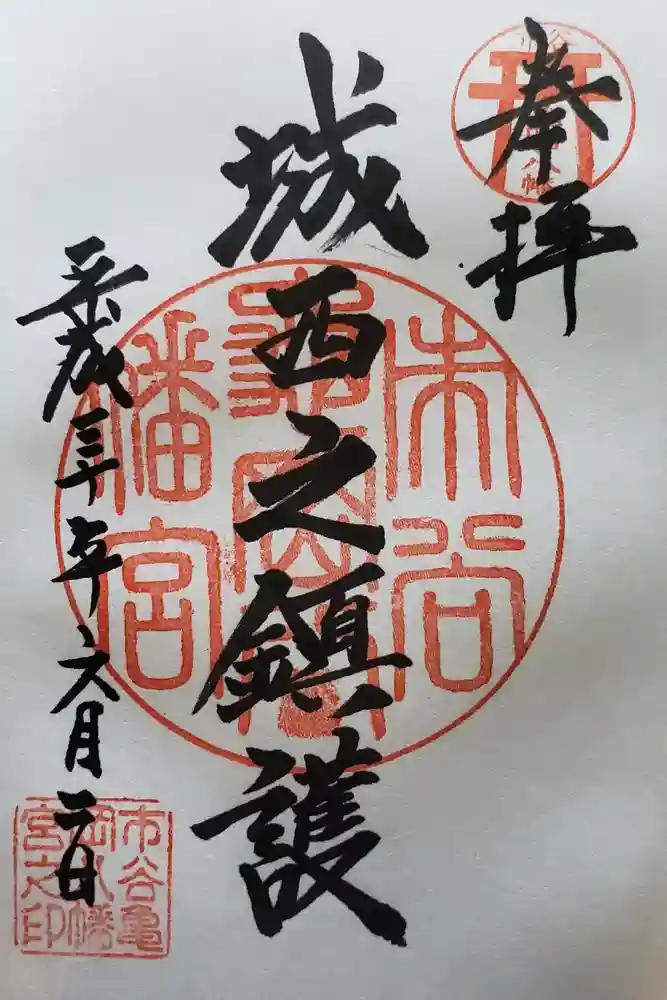 奉拝
城西之鎮護
平成三十年六月二日
市谷
亀岡八
幡宮
市谷亀
岡八幡
宮之印